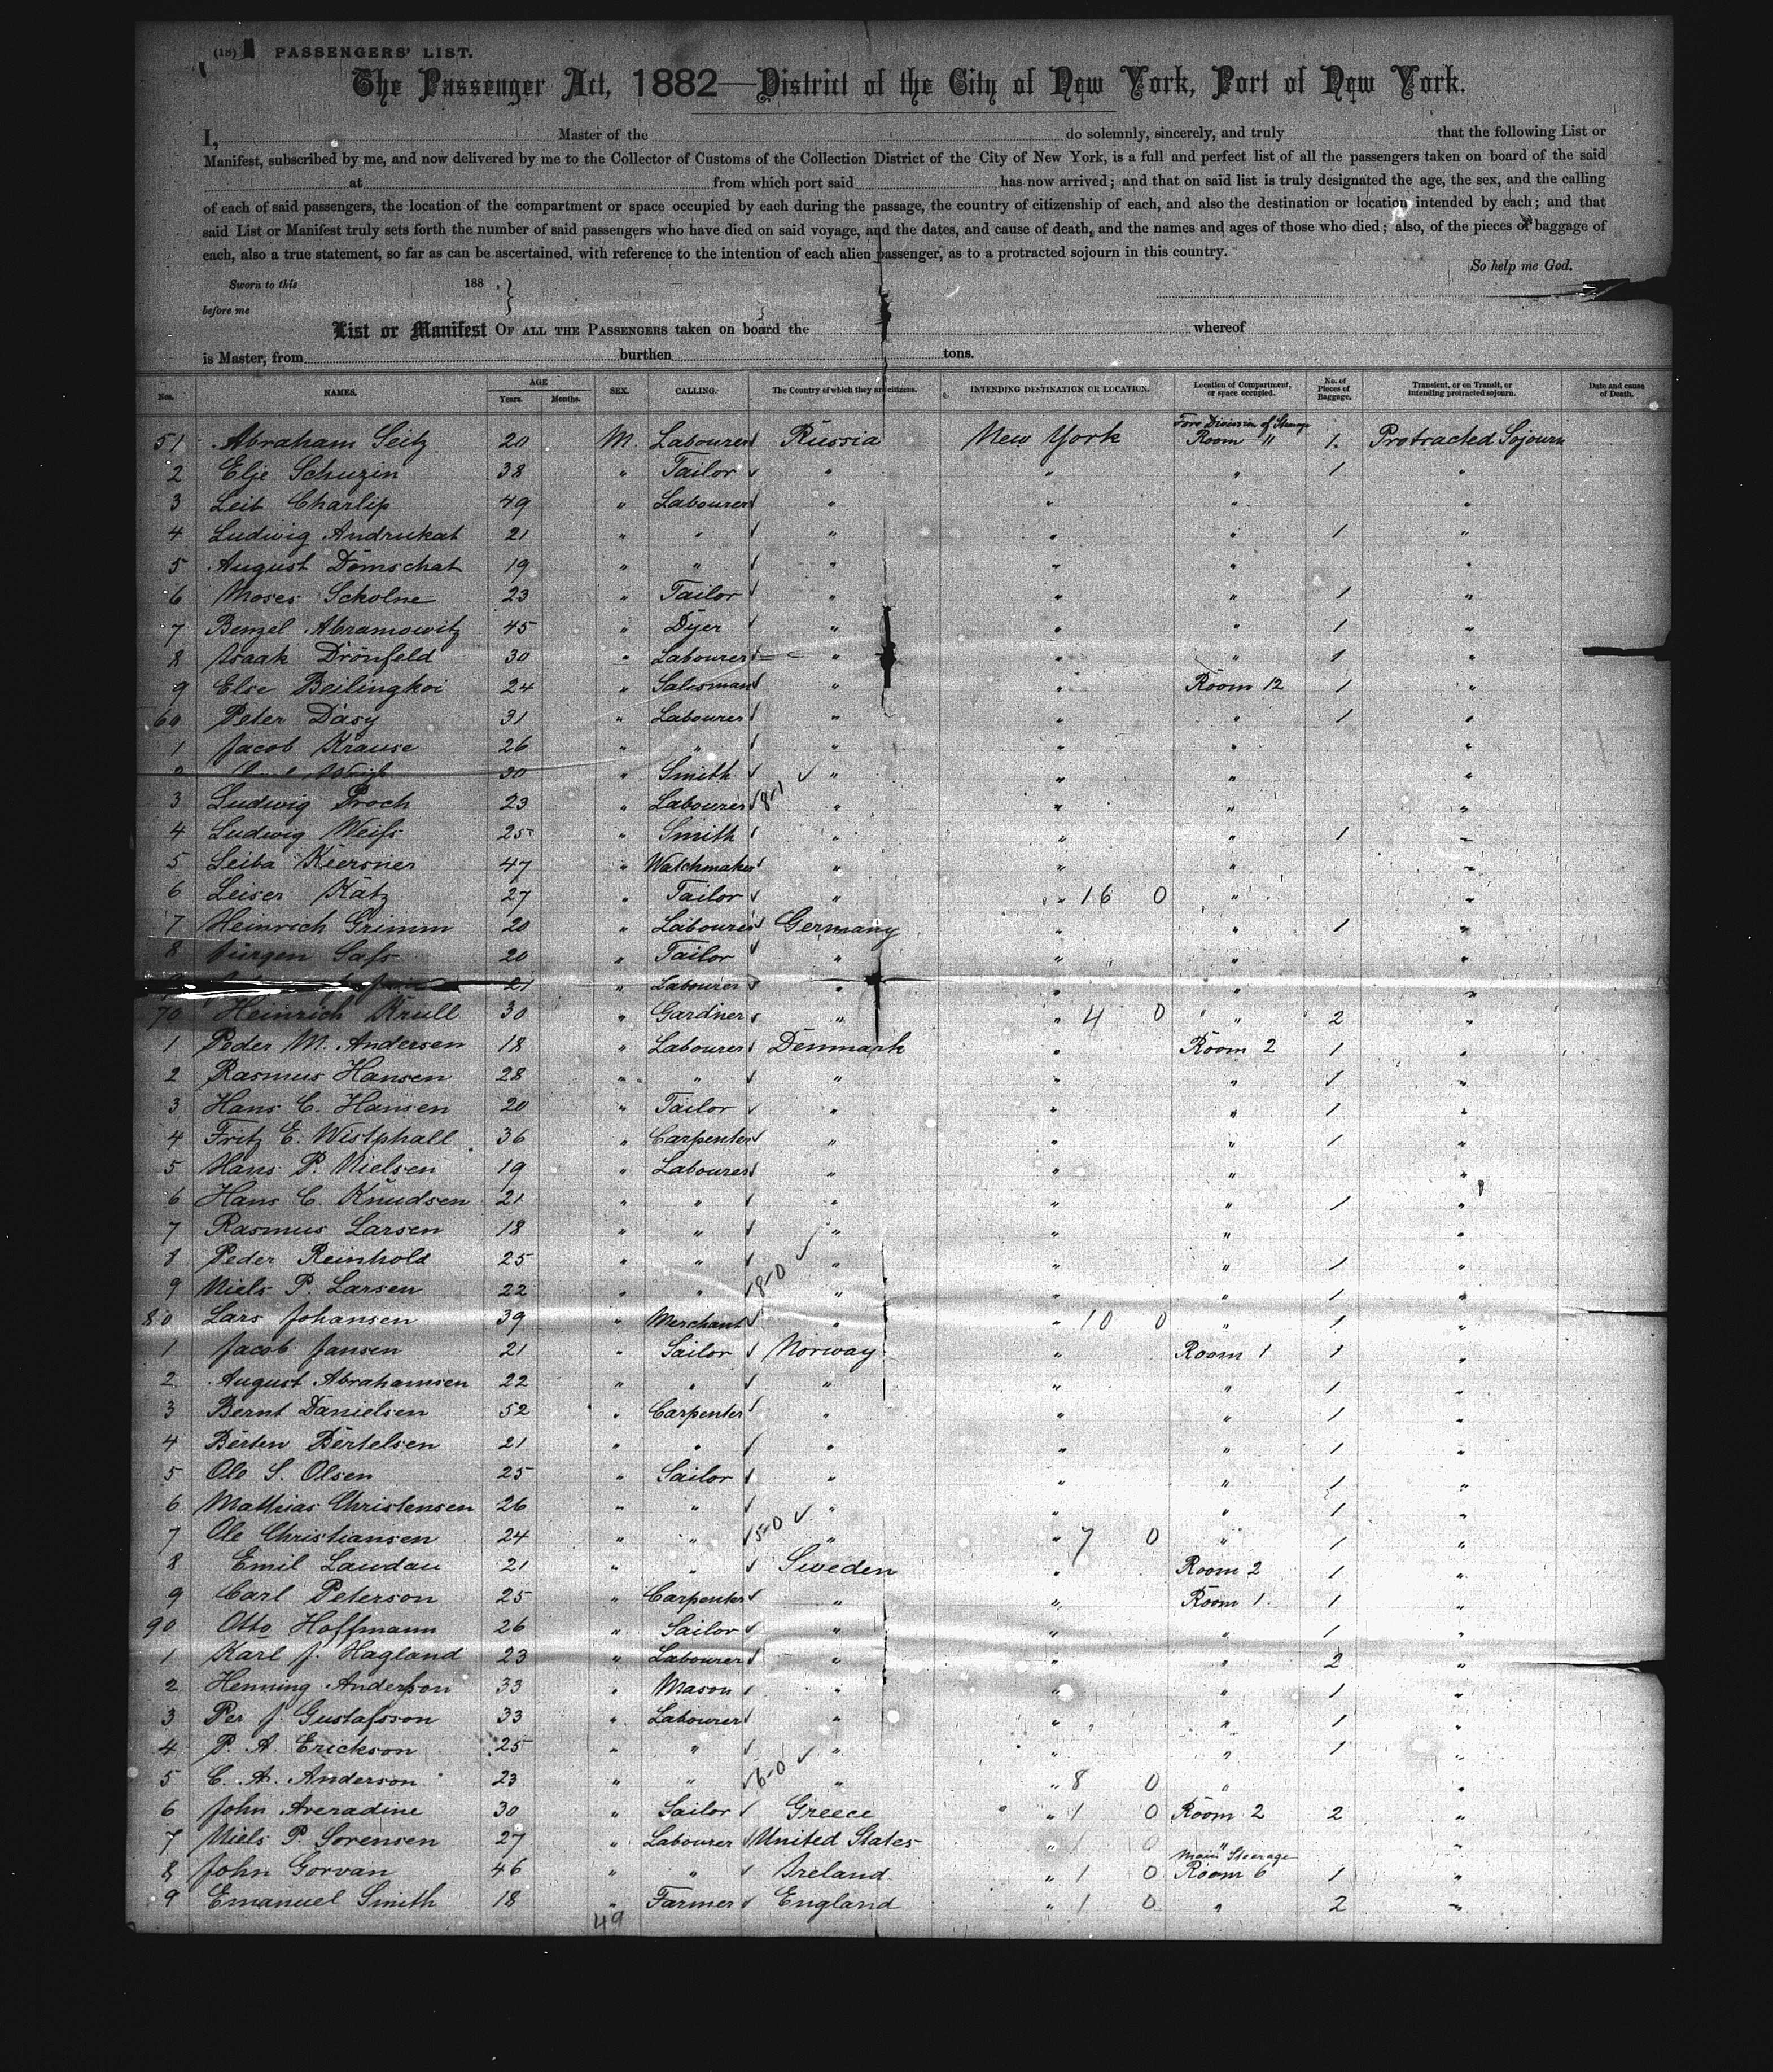 (18) PASSENGERS' LIST.
The Passenger Act, 1882—District of the City of New York, Port of New York.
I, Master of the do solemnly, sincerely, and truly that the following List or
Manifest, subscribed by me, and now delivered by me to the Collector of Customs of the Collection District of the City of New York, is a full and perfect list of all the passengers taken on board of the said
at from which port said has now arrived; and that on said list is truly designated the age, the sex, and the calling
of each of said passengers, the location of the compartment or space occupied by each during the passage, the country of citizenship of each, and also the destination or location intended by each; and that
said List or Manifest truly sets forth the number of said passengers who have died on said voyage, and the dates, and cause of death, and the names and ages of those who died; also, of the pieces of baggage of
each, also a true statement, so far as can be ascertained, with reference to the intention of each alien passenger, as to a protracted sojourn in this country.
So help me God.
Sworn to this 188 .
before me
List or Manifest OF ALL THE PASSENGERS taken on board the whereof
is Master, from burthen tons.
Nos. NAMES. AGE Years. Months. SEX. CALLING. The Country of which they are citizens. INTENDING DESTINATION OR LOCATION. Location of Compartment, or space occupied. No. of Pieces of Baggage. Transient, or on Transit, or intending protracted sojourn. Date and cause of Death.
Fore Division of Steerage
51 Abraham Seitz 20 M. Labourer Russia New York Room 11 1. Protracted Sojourn
2 Elje Schuzin 38 " Tailor " " " 1 "
3 Leib Charlip 49 " Labourer " " " "
4 Ludwig Andrukat 21 " " " " " 1 "
5 August Domschat 19 " " " " " "
6 Moses Scholne 23 " Tailor " " " 1 "
7 Benzel Abramowitz 45 " Dyer " " " 1 "
8 Isaak Dronfeld 30 " Labourer " " " 1 "
9 Else Beilingkoi 24 " Salesman " " Room 12 1 "
60 Peter Dasy 31 " Labourer " " " 1 "
1 Jacob Krause 26 " " " " " "
2 30 " Smith " " " "
3 Ludwig Proch 23 " Labourer 8-1 " " " "
4 Ludwig Weifs 25 " Smith " " " 1 "
5 Leiba Kiersner 47 " Watchmaker " " " "
6 Leiser Katz 27 " Tailor " " 16 0 " "
7 Heinrich Grimm 20 " Labourer Germany " " 1 "
8 Jürgen Safs 20 " Tailor " " " "
21 " Labourer " " " "
70 Heinrich Krull 30 " Gardner " " 4 0 " " 2 "
1 Peder M. Andersen 18 " Labourer Denmark " Room 2 1 "
2 Rasmus Hansen 28 " " " " " 1 "
3 Hans C. Hansen 20 " Tailor " " " 1 "
4 Fritz E. Wistphall 36 " Carpenter " " " 1 "
5 Hans P. Nielsen 19 " Labourer " " " "
6 Hans C. Knudsen 21 " " " " " 1 "
7 Rasmus Larsen 18 " " " " " "
8 Peder Reinhold 25 " " " " " 1 "
9 Niels P. Larsen 22 " " 8-0 " " " 1 "
80 Lars Johansen 39 " Merchant " " 10 0 " 1 "
1 Jacob Jansen 21 " Sailor Norway " Room 1 1 "
2 August Abrahamsen 22 " " " " " 1 "
3 Bernt Danielsen 52 " Carpenter " " " 1 "
4 Berten Bertelsen 21 " " " " " 1 "
5 Ole S. Olsen 25 " Sailor " " " 1 "
6 Mathias Christensen 26 " " " " " 1 "
7 Ole Christiansen 24 " " 5-0 " " 7 0 " 1 "
8 Emil Landau 21 " " Sweden " Room 2 1 "
9 Carl Peterson 25 " Carpenter " " Room 1. 1 "
90 Otto Hoffmann 26 " Sailor " " " 1 "
1 Karl J. Hagland 23 " Labourer " " " 2 "
2 Henning Anderson 33 " Mason " " " 1 "
3 Per J. Gustafsson 33 " Labourer " " " 1 "
4 P. A. Erickson 25 " " " " " 1 "
5 C. A. Anderson 23 " " 6-0 " " 8 0 " "
6 John Averadine 30 " Sailor Greece " 1 0 Room 2 2 "
7 Niels P. Sorensen 27 " Labourer United States " 1 0 " "
Main Steerage
8 John Gorvan 46 " " Ireland " 1 0 Room 6 1 "
9 Emanuel Smith 18 " Farmer England " 1 0 " 2 "
49